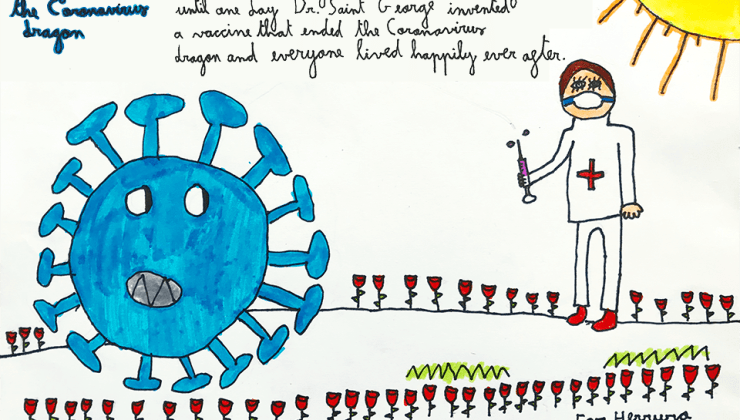 the Coronavirus
dragon
until one day Dr. Saint George invented
a vaccine that ended the Coronavirus
dragon and everyone lived happily ever after.